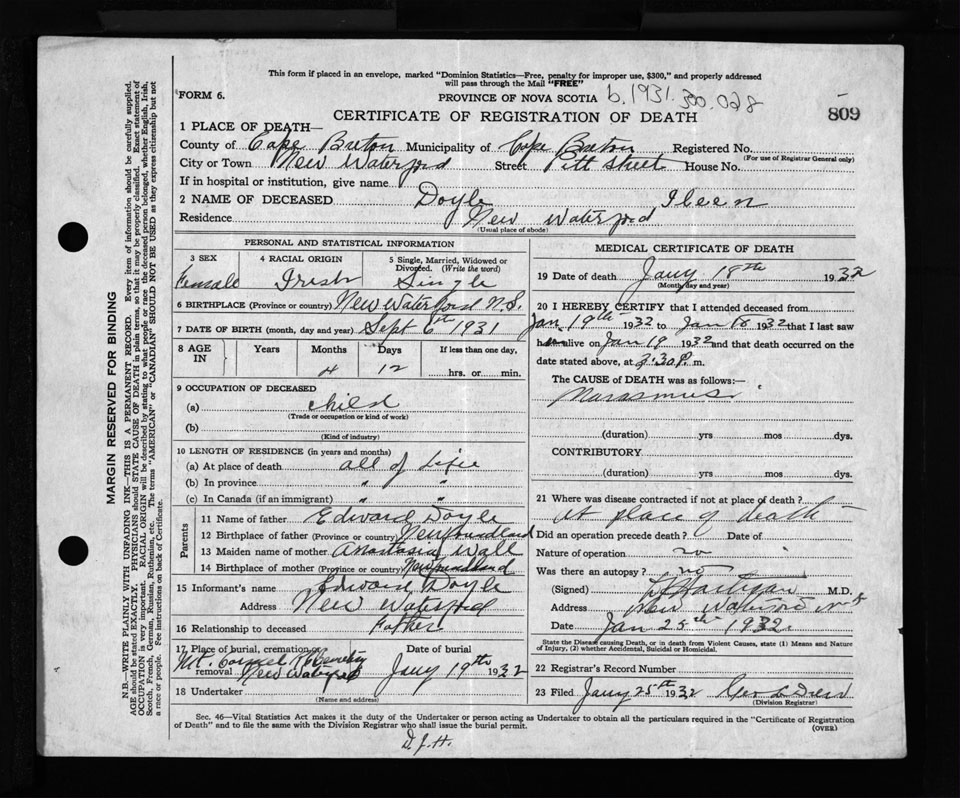 This form if placed in an envelope, marked "Dominion Statistics—Free, penalty for improper use, $300," and properly addressed
will pass through the Mail "FREE"
FORM 6.
PROVINCE OF NOVA SCOTIA b.1931.300.028
CERTIFICATE OF REGISTRATION OF DEATH 809
1 PLACE OF DEATH—
County of Cape Breton Municipality of Cape Breton Registered No.
(For use of Registrar General only)
City or Town New Waterford Street Pitt Street House No.
If in hospital or institution, give name
2 NAME OF DECEASED Doyle Ileen
Residence New Waterford
(Usual place of abode)
PERSONAL AND STATISTICAL INFORMATION
3 SEX 4 RACIAL ORIGIN 5 Single, Married, Widowed or
Divorced. (Write the word)
Female Irish Single
6 BIRTHPLACE (Province or country) New Waterford N.S.
7 DATE OF BIRTH (month, day and year) Sept 6th 1931
8 AGE IN Years Months Days If less than one day,
4 12 hrs. or min.
9 OCCUPATION OF DECEASED
(a) child
(Trade or occupation or kind of work)
(b)
(Kind of industry)
10 LENGTH OF RESIDENCE (in years and months)
(a) At place of death all of life
(b) In province " "
(c) In Canada (if an immigrant) " "
Parents
11 Name of father Edward Doyle
12 Birthplace of father (Province or country) Newfoundland
13 Maiden name of mother Anastasia Wall
14 Birthplace of mother (Province or country) Newfoundland
15 Informant's name Edward Doyle
Address New Waterford
16 Relationship to deceased Father
17 Place of burial, cremation or removal Date of burial
Mt. Carmel R C Cemetery
New Waterford Jany 19th 1932
18 Undertaker
(Name and address)
MEDICAL CERTIFICATE OF DEATH
19 Date of death Jany 18th 1932
(Month, day and year)
20 I HEREBY CERTIFY that I attended deceased from
Jan 19th 1932 to Jan 18 1932 that I last saw
h alive on Jan 19 1932 and that death occurred on the
date stated above, at 3:30 P. m.
The CAUSE of DEATH was as follows:—
Marasmus
(duration) yrs mos dys.
CONTRIBUTORY
(duration) yrs mos dys.
21 Where was disease contracted if not at place of death?
At place of death
Did an operation precede death? Date of
Nature of operation no
Was there an autopsy? no
(Signed) M.D.
Address New Waterford N S
Date Jan 25th 1932
State the Disease causing Death, or in death from Violent Causes, state (1) Means and
Nature of Injury, (2) whether Accidental, Suicidal or Homicidal.
22 Registrar's Record Number
23 Filed Jany 25th 1932 Geo
(Division Registrar)
Sec. 46—Vital Statistics Act makes it the duty of the Undertaker or person acting as Undertaker to obtain all the particulars required in the "Certificate of Registration
of Death" and to file the same with the Division Registrar who shall issue the burial permit. (OVER)
D.J.H.
MARGIN RESERVED FOR BINDING
N.B.—WRITE PLAINLY WITH UNFADING INK—THIS IS A PERMANENT RECORD. Every item of information should be carefully supplied.
AGE should be stated EXACTLY. PHYSICIANS should STATE CAUSE OF DEATH in plain terms, so that it may be properly classified. Exact statement of
OCCUPATION is very important. RACIAL ORIGIN will be described by stating to what people or race the deceased person belonged, whether English, Irish,
Scotch, French, German, Russian, Ruthenian, etc. The terms "AMERICAN" or "CANADIAN" SHOULD NOT BE USED as they express citizenship but not
a race or people. See instructions on back of Certificate.